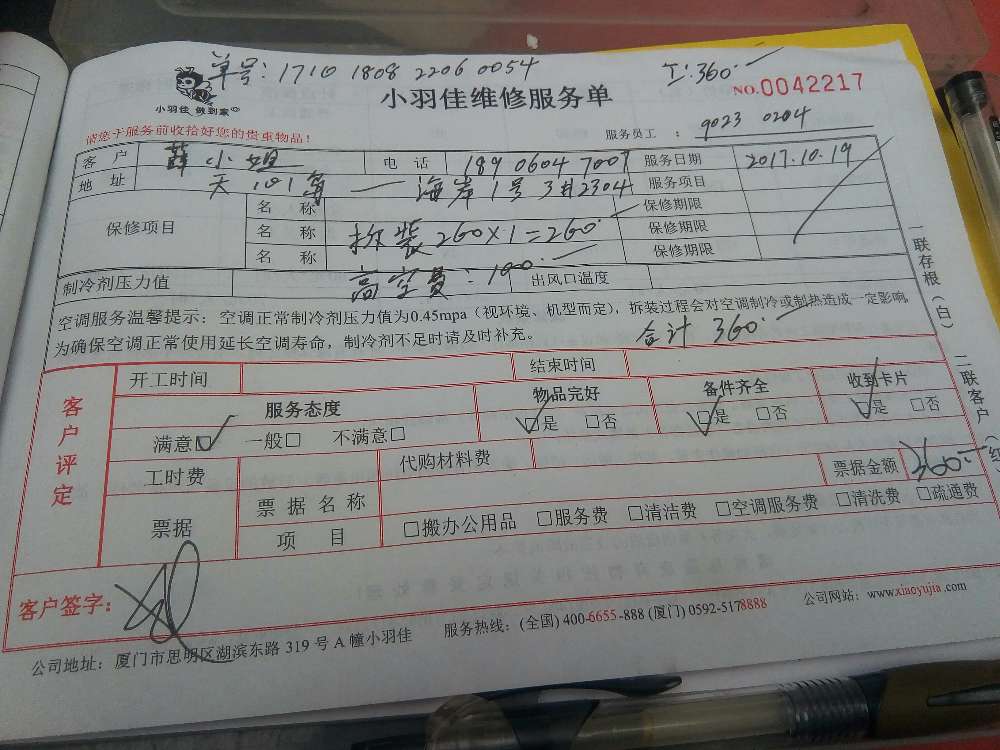 单号：1710 1808 2206 0054
工:360.
小羽佳 做到家
小羽佳维修服务单
NO.0042217
请您于服务前收拾好您的贵重物品！
服务员工 ： 9023 0204
客 户 薛小姐 电 话 189 0604 7009 服务日期 2017.10.19
地 址 海岸1号 3#2304 服务项目
保修项目
名 称 保修期限
名 称 拆装260×1=260. 保修期限
名 称 保修期限
制冷剂压力值 高空费：100. 出风口温度
空调服务温馨提示：空调正常制冷剂压力值为0.45mpa（视环境、机型而定），拆装过程会对空调制冷或制热造成一定影响，
为确保空调正常使用延长空调寿命，制冷剂不足时请及时补充。
合计 360.
一联存根（白） 二联客户（红
客户评定
开工时间 结束时间
服务态度 物品完好 备件齐全 收到卡片
满意☑ 一般□ 不满意□ ☑是 □否 ☑是 □否 ☑是 □否
工时费 代购材料费
票据 票据名称 票据金额 360.
项 目 □搬办公用品 □服务费 □清洁费 □空调服务费 □清洗费 □疏通费
客户签字：
公司地址：厦门市思明区湖滨东路 319 号 A 幢小羽佳 服务热线：(全国) 400-6655-888 (厦门) 0592-5178888 公司网站：www.xiaoyujia.com